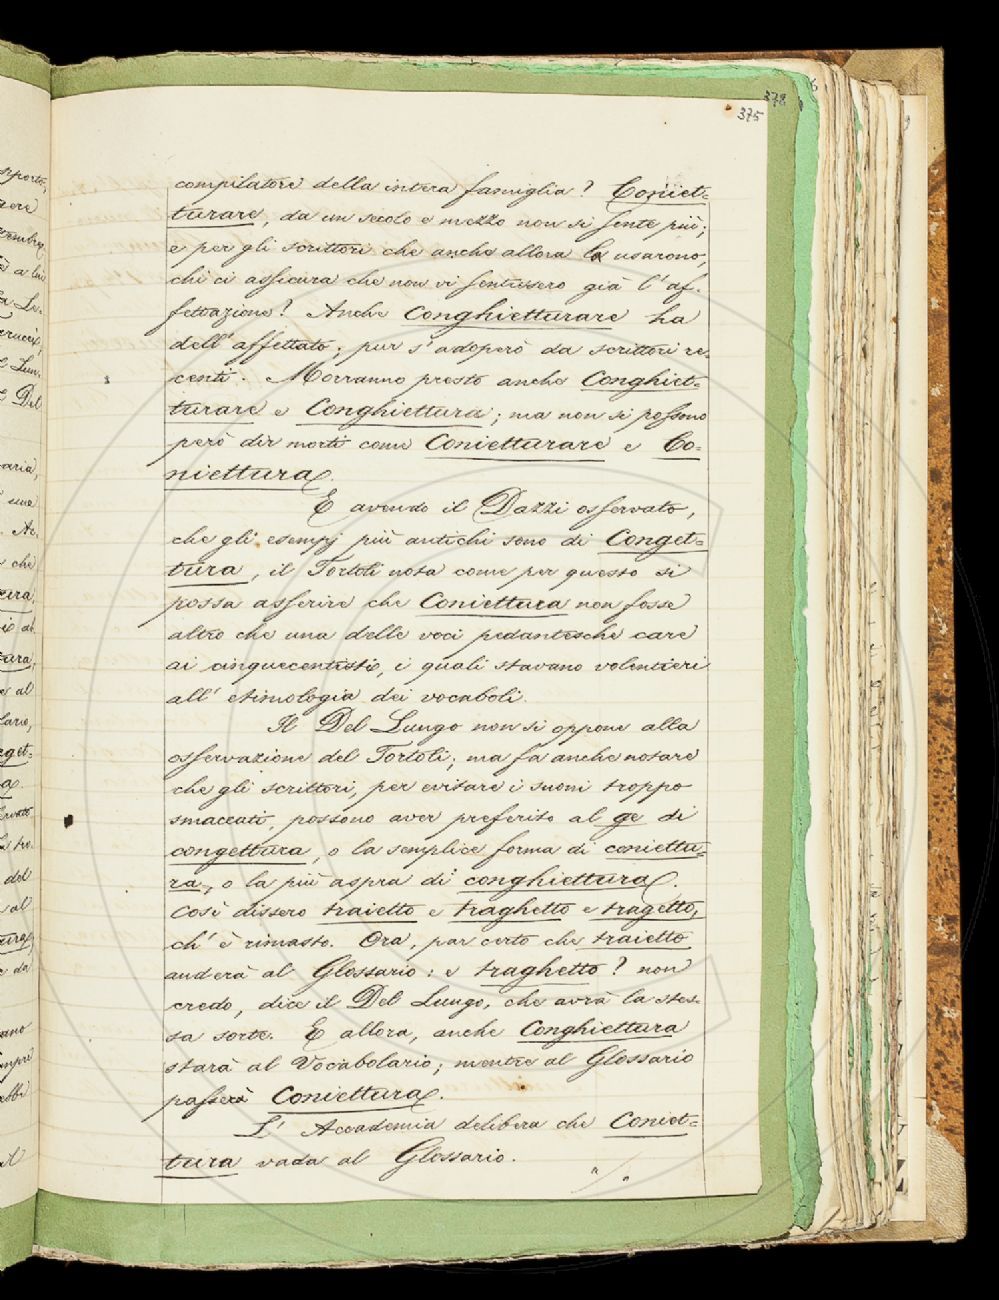 378
375
compilatore della intera famiglia? Coniet-
turare, da un secolo e mezzo non si sente più;
e per gli scrittori che anche allora lo usarono,
chi ci assicura che non vi sentissero già l'af-
fettazione? Anche Conghietturare ha
dell'affettato; pur s'adoperò da scrittori re-
centi. Morranno presto anche Conghiet-
turare e Conghiettura; ma non si possono
però dir morti come Conietturare e Co-
niettura.
E avendo il Dazzi osservato,
che gli esempj più antichi sono di Conget-
tura, il Tortoli nota come per questo si
possa asserire che Coniettura non fosse
altro che una delle voci pedantesche care
ai cinquecentisti, i quali stavano volentieri
all'etimologia dei vocaboli.
Il Del Lungo non si oppone alla
osservazione del Tortoli; ma fa anche notare
che gli scrittori, per evitare i suoni troppo
smaccati, possono aver preferito al ge di
congettura, o la semplice forma di coniettu-
ra, o la più aspra di conghiettura.
Così dissero traietto e traghetto e tragetto,
ch'è rimasto. Ora, par certo che traietto
anderà al Glossario: e traghetto? non
credo, dice il Del Lungo, che avrà la stes-
sa sorte. E allora, anche Conghiettura
starà al Vocabolario; mentre al Glossario
passerà Coniettura.
L'Accademia delibera che Coniet-
tura vada al Glossario.